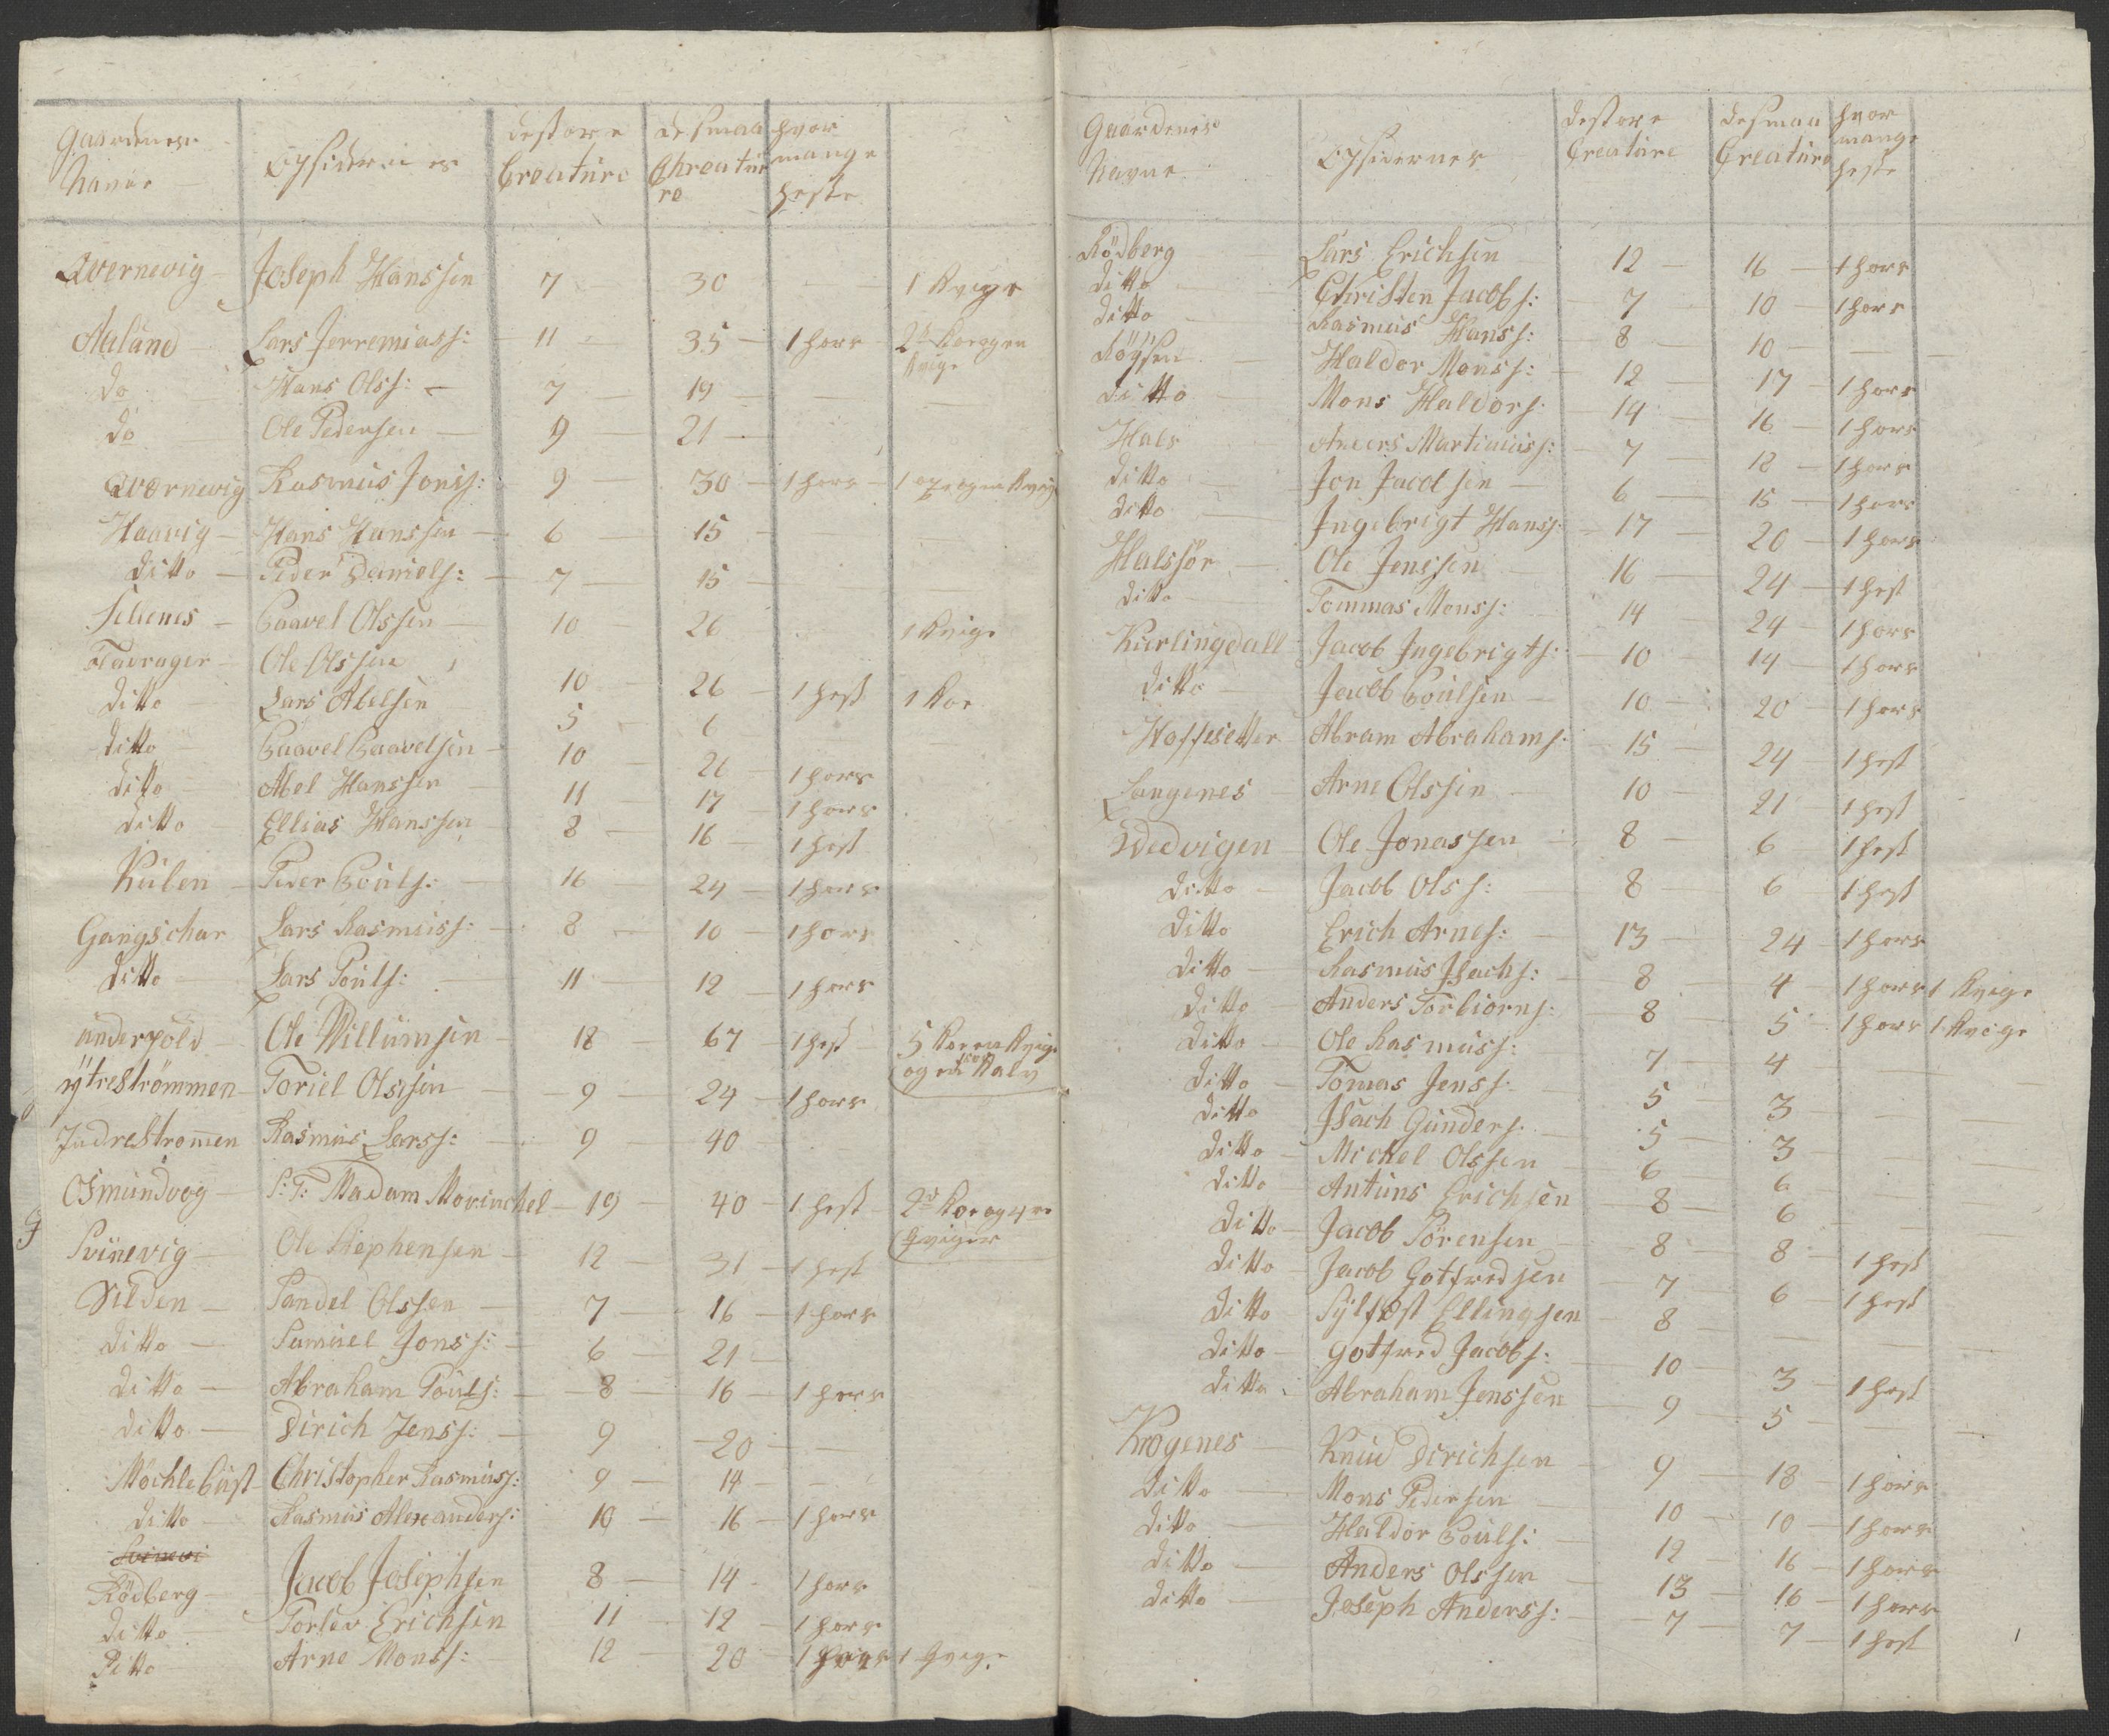 Gaardenes Navne — Opsidernes — de store Creature — de smaa Chreature — hvor mange heste
Qvernevig — Joseph Hanssen — 7 — 30 — 1 Kvige
Aaland — Lars Jerremiass: — 11 — 35 — 1 hors — 2 Kor og en Kvige
do — Hans Olss: — 7 — 19
do — Ole Pedersen — 9 — 21
Qvernevig — Rasmus Jonss: — 9 — 30 — 1 hors — 1 Kvige
Haavig — Hans Hanssen — 6 — 15
ditto — Peder Daniels: — 7 — 15
Sellenes — Paavel Olssen — 10 — 26 — 1 Kvige
Tavrager — Ole Olssen — 10 — 26 — 1 hest — 1 Koe
ditto — Lars Abelsen — 5 — 6
ditto — Paavel Paavelsen — 10 — 26 — 1 hors
ditto — Abel Hanssen — 11 — 17 — 1 hors
ditto — Ellias Hanssen — 8 — 16 — 1 hest
Kulen — Peder Pouls: — 16 — 24 — 1 hors
Gangschar — Lars Rasmuss: — 8 — 10 — 1 hors
ditto — Lars Pouls: — 11 — 12 — 1 hors
underpold — Ole Willumsen — 18 — 67 — 1 hest — 5 Kor en Kvige og en Kalv
ÿtreströmmen — Toriel Olssen — 9 — 24 — 1 hors
Indrestromen — Rasmus Larss: — 9 — 40
Osmundvog — S: T: Madam Movinchel — 19 — 40 — 1 hest — 2 Kor og 4re Qviger
Svinevig — Ole Stephensen — 12 — 31 — 1 hest
Silden — Sandel Olssen — 7 — 16 — 1 hors
ditto — Samuel Jonss: — 6 — 21
ditto — Abraham Pouls: — 8 — 16 — 1 hors
ditto — Dirich Jenss: — 9 — 20
Mochlebust — Christopher Rasmuss: — 9 — 14
ditto — Rasmus Alexanders: — 10 — 16 — 1 hors
Svinevi
Rödberg — Jacob Josephsen — 8 — 14 — 1 hors
ditto — Torlev Erichsen — 11 — 12 — 1 hors
ditto — Arne Monss: — 12 — 20 — 1 hors — 1 Qvige
Gaardenes Navne — Opsidernes — de store Creature — de smaa Creature — hvor mange heste
Rödberg — Lars Erichsen — 12 — 16 — 1 hors
ditto — Christen Jacobs: — 7 — 10 — 1 hors
ditto — Rasmus Hanss: — 8 — 10
Röÿsen — Haldor Monss: — 12 — 17 — 1 hors
ditto — Mons Haldors: — 14 — 16 — 1 hors
Hals — Anders Martinuss: — 7 — 12 — 1 hors
ditto — Jon Jacobsen — 6 — 15 — 1 hors
ditto — Ingebrigt Hanss: — 17 — 20 — 1 hors
Halssör — Ole Jenssen — 16 — 24 — 1 hest
ditto — Tommas Monss: — 14 — 24 — 1 hors
Kurlingdall — Jacob Ingebrigts: — 10 — 14 — 1 hors
ditto — Jacob Poulsen — 10 — 20 — 1 hors
Hoffsetter — Abram Abrahams: — 15 — 24 — 1 hest
Langenes — Arne Olssen — 10 — 21 — 1 hest
Wedvigen — Ole Jonassen — 8 — 6 — 1 hest
ditto — Jacob Olss: — 8 — 6 — 1 hest
ditto — Erich Arnes: — 13 — 24 — 1 hors
ditto — Rasmus Isachs: — 8 — 4 — 1 hors — 1 Kvige
ditto — Anders Torbiorns: — 8 — 5 — 1 hors — 1 Kvige
ditto — Ole Rasmuss: — 7 — 4
ditto — Tomas Jenss: — 5 — 3
ditto — Isach Gunders: — 5 — 3
ditto — Mickel Olssen — 6 — 6
ditto — Antuns Erichsen — 8 — 6
ditto — Jacob Sörensen — 8 — 8 — 1 hest
ditto — Jacob Gotfredsen — 7 — 6 — 1 hest
ditto — Sÿlfest Ellingsen — 8
ditto — Gotfred Jacobs: — 10 — 3 — 1 hest
ditto — Abraham Jenssen — 9 — 5
Krogenes — Knud Dirichsen — 9 — 18 — 1 hors
ditto — Mons Pedersen — 10 — 10 — 1 hors
ditto — Haldor Pouls: — 12 — 16 — 1 hors
ditto — Anders Olssen — 13 — 16 — 1 hors
ditto — Joseph Anderss: — 7 — 7 — 1 hest